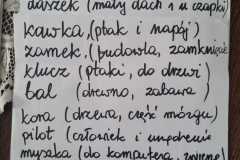 daszek (mały dach i u czapki)
kawka, (ptak i napój)
zamek, (budowla, zamknięcie
klucz (ptaki, do drzwi)
bal (drewno, zabawa)
kora (drzewa, część mózgu)
pilot (człowiek i urządzenie
myszka (do komputera, zwierzę)